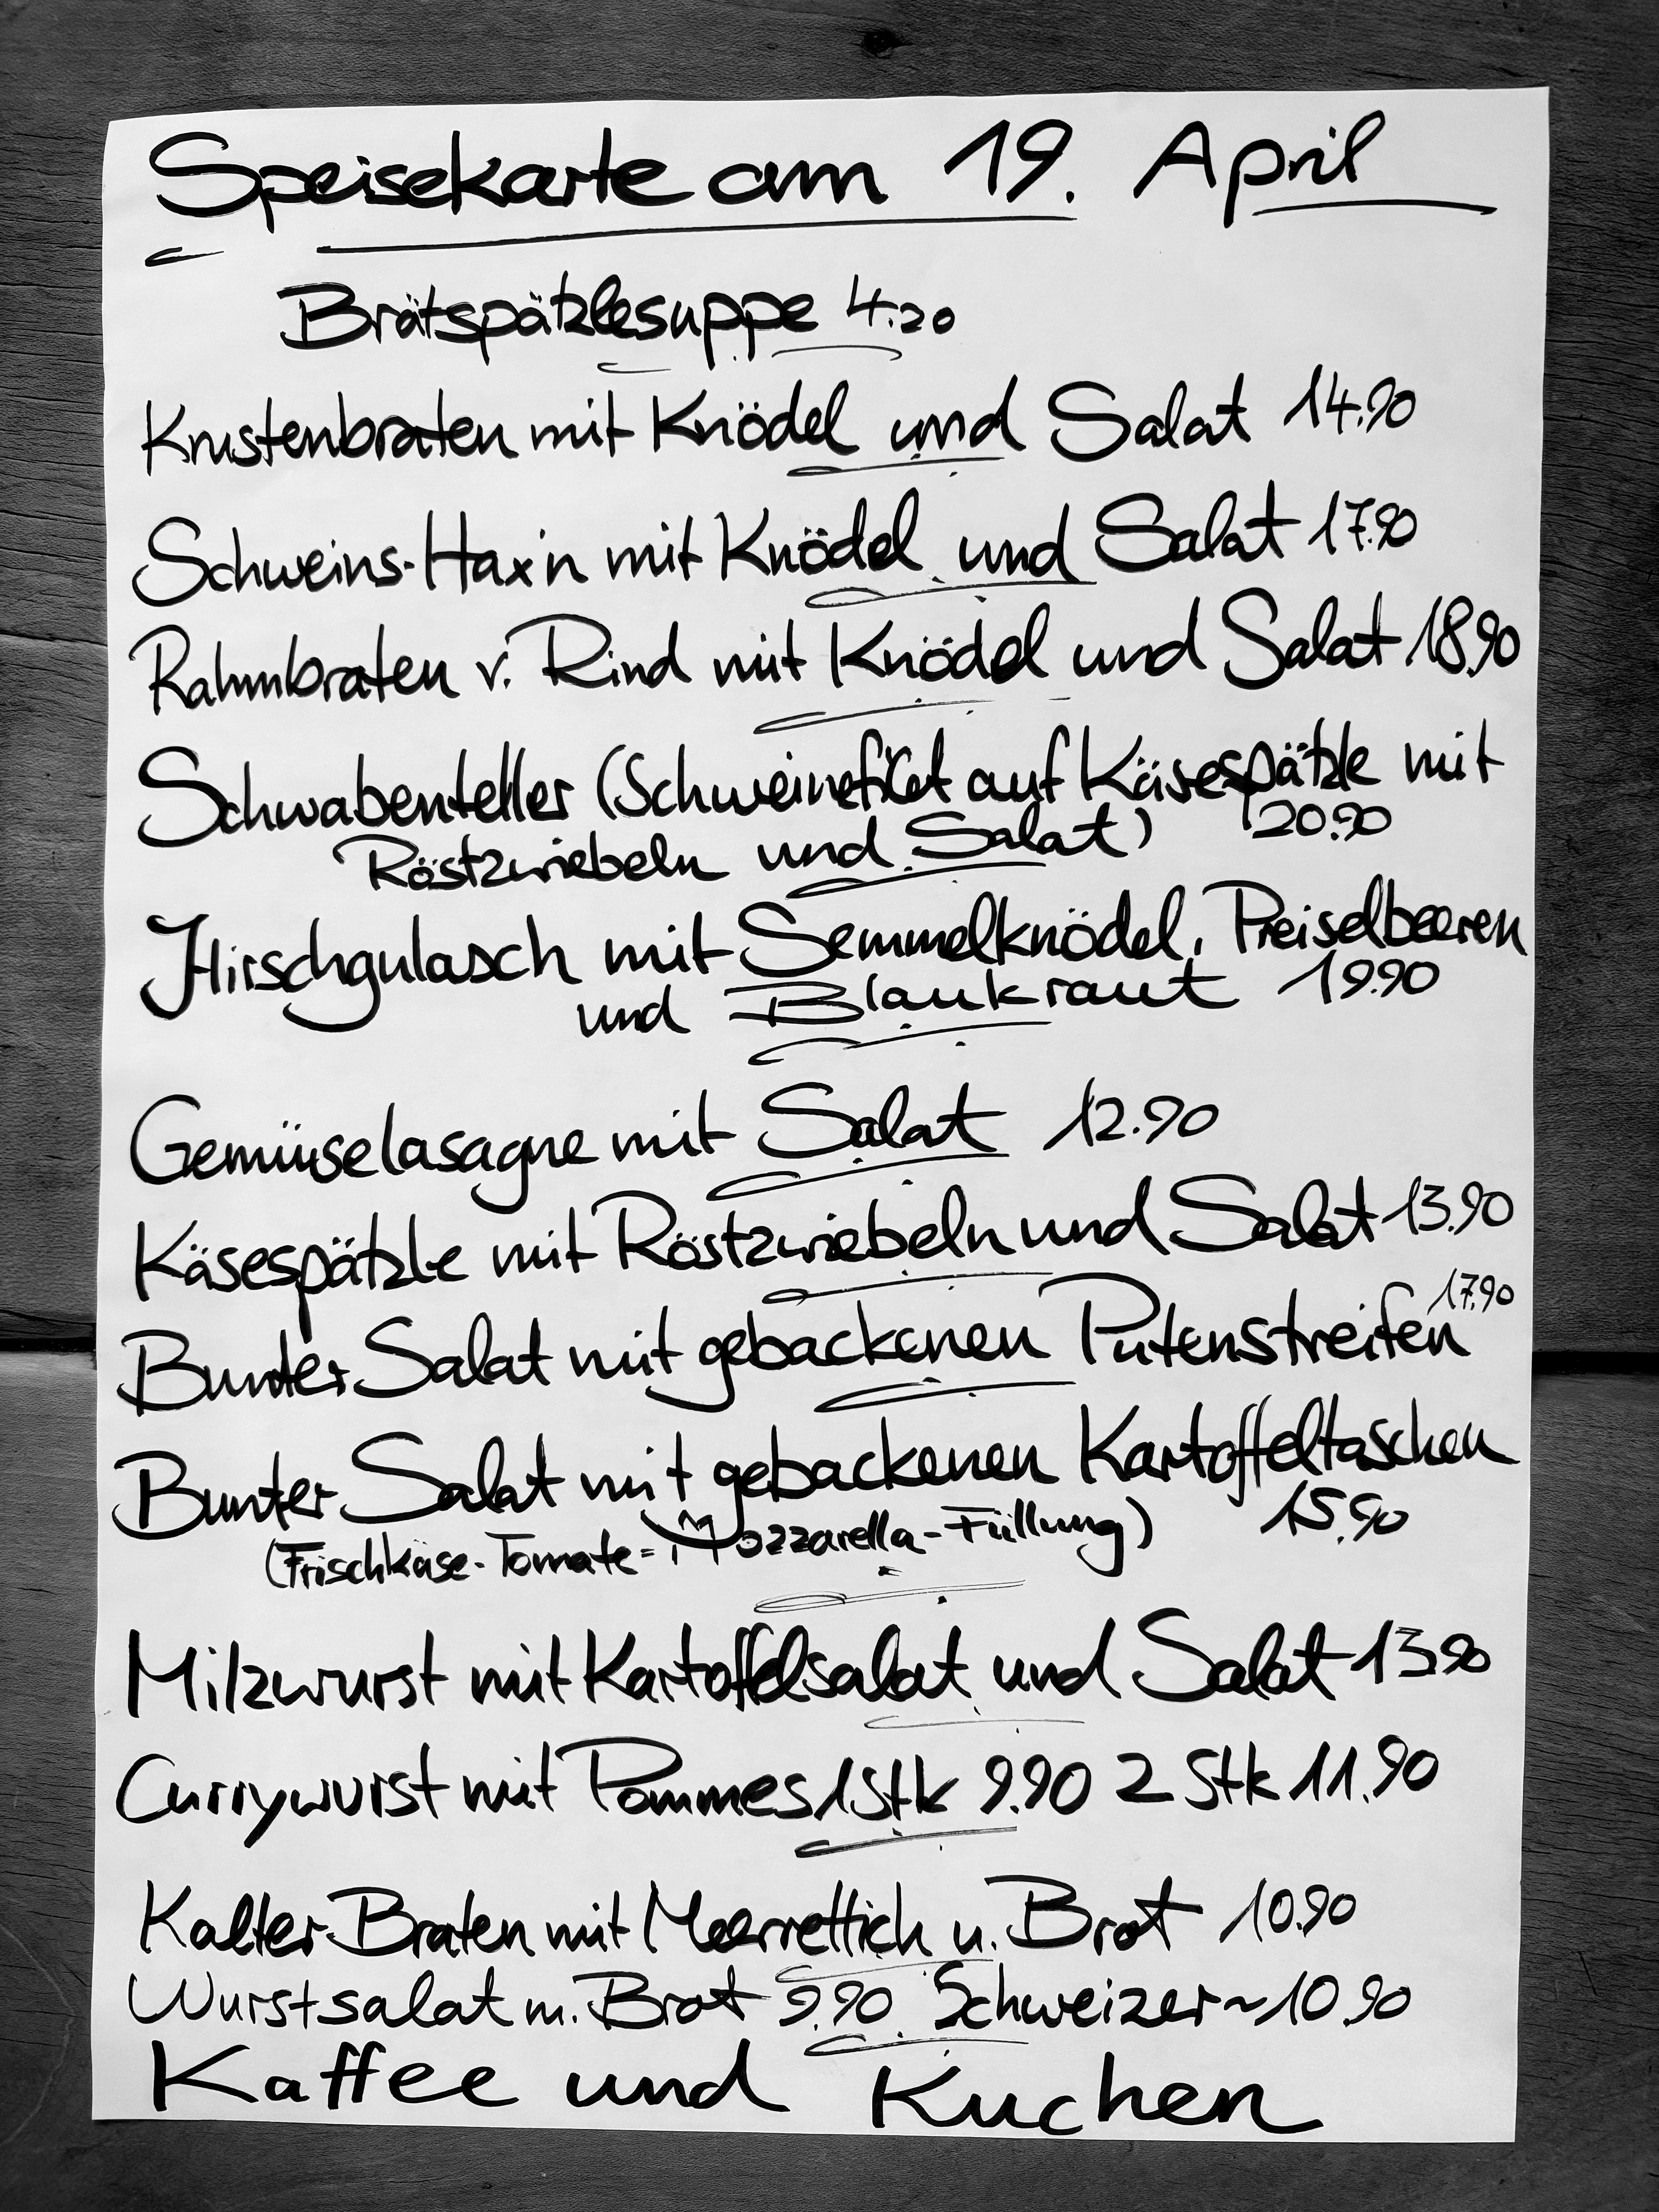 Speisekarte am 19. April
Brätspätzlesuppe 4.20
Krustenbraten mit Knödel und Salat 14.90
Schweins-Hax'n mit Knödel und Salat 17.90
Rahmbraten v. Rind mit Knödel und Salat 18.90
Schwabenteller (Schweinefilet auf Käsespätzle mit
Röstzwiebeln und Salat) 20.90
Hirschgulasch mit Semmelknödel, Preiselbeeren
und Blaukraut 19.90
Gemüuselasagne mit Salat 12.90
Käsespätzle mit Röstzwiebeln und Salat 13.90
Bunter Salat mit gebackenen Putenstreifen 17.90
Bunter Salat mit gebackenen Kartoffeltaschen
(Frischkäse-Tomate-Mozzarella-Füllung) 15.90
Milzwurst mit Kartoffelsalat und Salat 13.90
Currywurst mit Pommes 1 Stk 9.90 2 Stk 11.90
Kalter Braten mit Meerrettich u. Brot 10.90
Wurstsalat m. Brot 9.90 Schweizer ~ 10.90
Kaffee und Kuchen